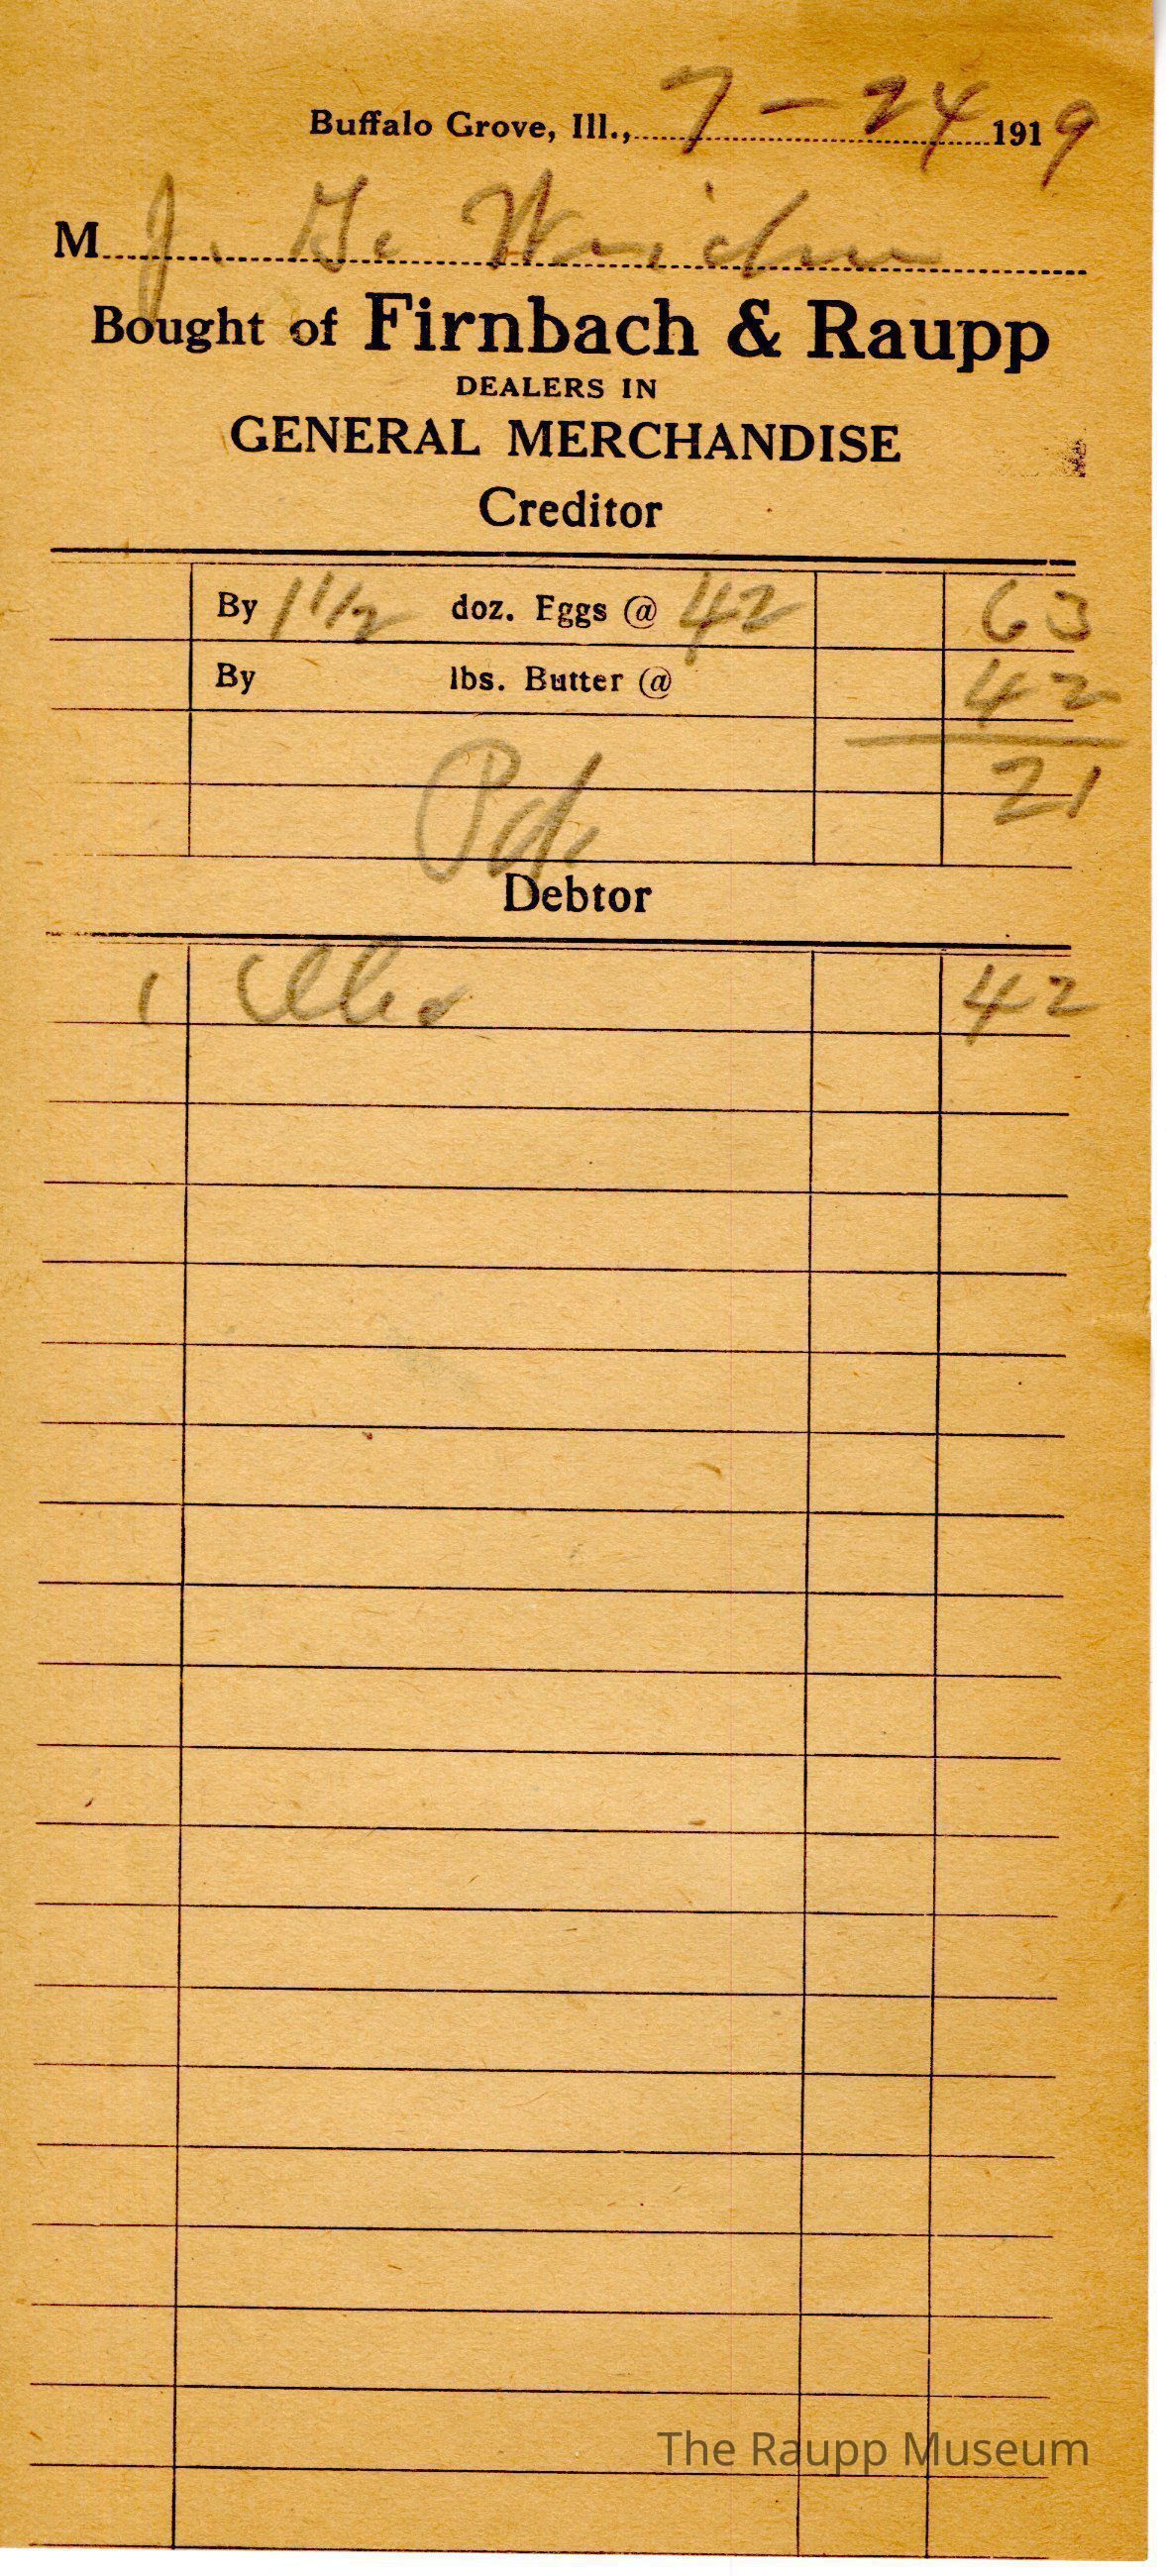 Buffalo Grove, Ill., 7-24 1919
M J. G.
Bought of Firnbach & Raupp
DEALERS IN
GENERAL MERCHANDISE
Creditor
By 1 1/2 doz. Eggs @ 42 63
By lbs. Butter @ 42
21
Pd.
Debtor
1 42
The Raupp Museum